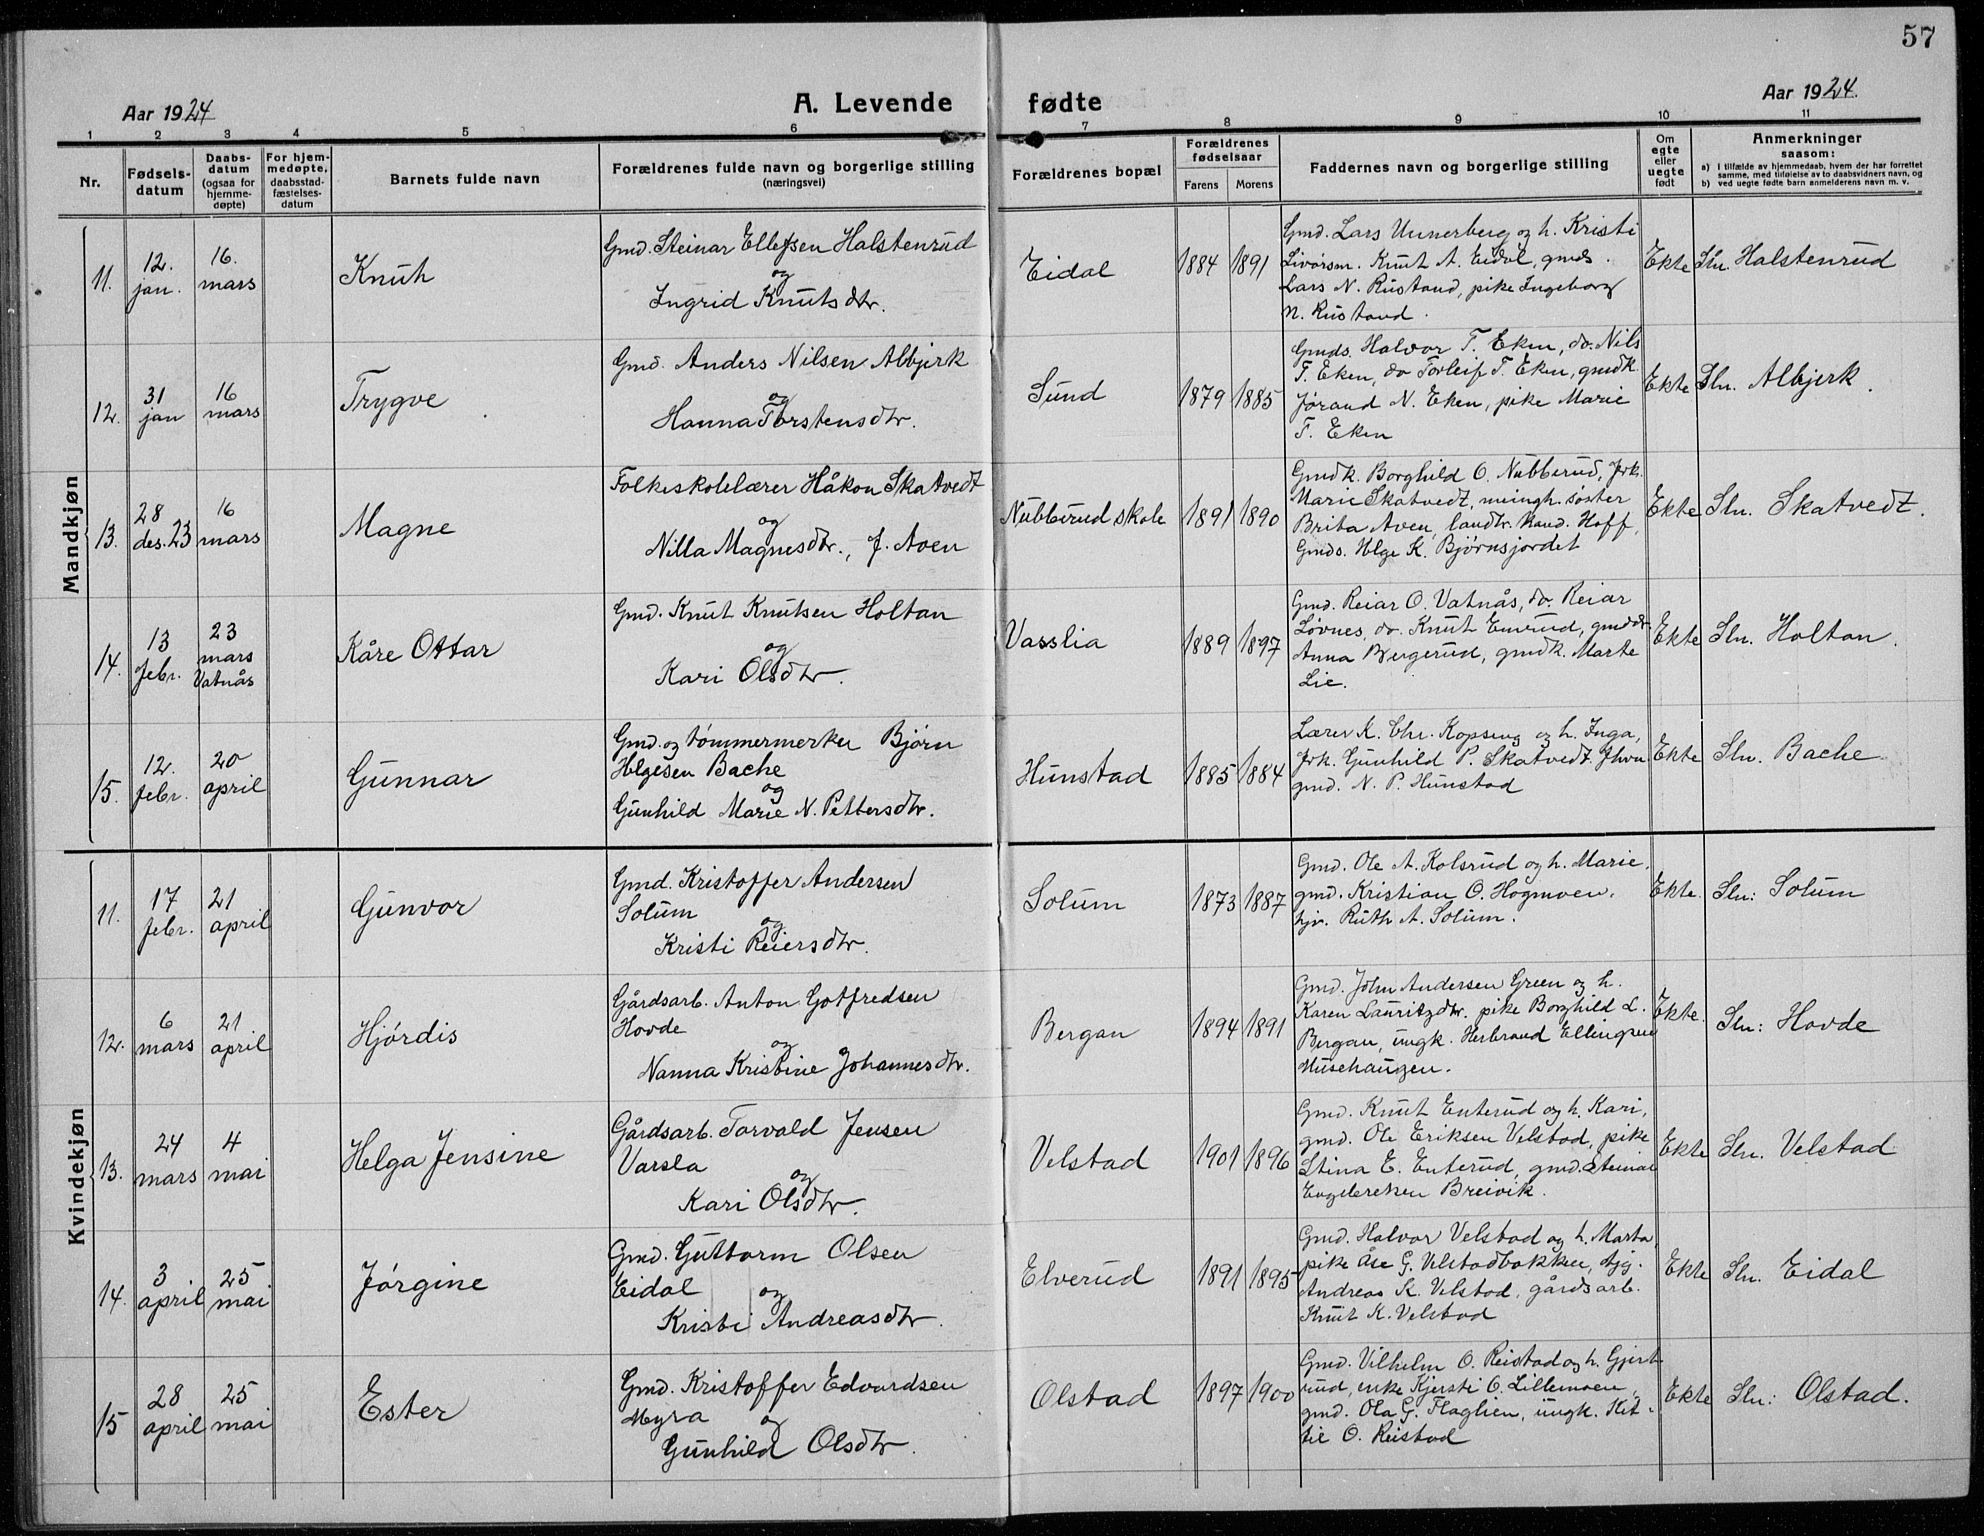 57
Aar 1924
A. Levende fødte
Aar 1924.
1 2 3 4 5 6 7 8 9 10 11
Nr.
Fødsels-
datum
Daabs-
datum
(ogsaa for
hjemme-
døpte)
For hjem-
medøpte,
daabsstad-
fæstelses-
datum
Barnets fulde navn
Forældrenes fulde navn og borgerlige stilling
(næringsvei)
Forældrenes bopæl
Forældrenes
fødselsaar
Farens Morens
Faddernes navn og borgerlige stilling
Om
egte
eller
uegte
født
Anmerkninger
saasom:
a) I tilfælde av hjemmedaab, hvem der har forrettet
samme, med tilføielse av to daabsvidners navn, og
b) ved uegte fødte barn anmelderens navn m. v.
Mandkjøn
11.
12.
jan.
16.
mars
Knuth
Gmd. Steinar Ellefsen Halstenrud
og
Ingrid Knutsdtr.
Eidal
1884 1891
Gmd. Lars Unnerberg og h. Kristi
Knut A. Eidal, gmds.
Lars N. Rustand, pike Ingeborg
N. Rustand.
Ekte
Sln. Halstenrud
12.
31
jan
16
mars
Trygve
Gmd. Anders Nilsen Albjerk
og
Hanna Torstensdtr.
Sund
1879 1885
Gmds. Halvor T. Eken, do. Nils
T. Eken, do Torleif T. Eken, gmdk.
Jørand N. Eken, pike Marie
T. Eken
Ekte
Sln. Albjerk.
13.
28
des. 23
16
mars
Magne
Folkeskolelærer Håkon Skatvedt
og
Nilla Magnesdtr., f. Aven
Nubberud skole
1891 1890
Gmdk. Borghild O. Nubberud, frk.
Marie Skatvedt, meingh. søster
Brita Aven, landbr. kand. Hoff,
Gmds. Helge K. Bjørnsjordet
Ekte
Sln. Skatvedt.
14.
13
febr.
23
mars
Vatnås
Kåre Ottar
Gmd. Knut Knutsen Holtan
og
Kari Olsdtr.
Vasslia
1889 1897
Gmd. Reiar O. Vatnås, do. Reiar
Løvnes, do. Knut Enerud, gmddtr.
Anna Bergerud, gmdk. Marte
Lie.
Ekte
Sln. Holtan.
15.
12.
febr.
20
april
Gunnar
Gmd. og tømmermerker Bjørn
Helgesen Bache
og
Gunhild Marie N. Pettersdtr.
Hunstad
1885 1884
Lærer K. Chr. Kopseng og h. Inga,
frk. Gunhild P. Skatvedt
gmd. N. P. Hunstad
Ekte
Sln. Bache
Kvindekjøn
11.
17
febr.
21
april
Gunvor
Gmd. Kristoffer Andersen
Solum
og
Kristi Reiersdtr.
Solum
1873 1887
Gmd. Ole A. Kolsrud og h. Marie,
gmd. Kristian O. Hogmoen.
hjv. Ruth A. Solum.
Ekte.
Sln: Solum
12.
6
mars
21
april
Hjørdis
Gårdsarb. Anton Gotfredsen
Hovde
og
Nanna Kristine Johannesdtr.
Bergan
1894 1891
Gmd. John Andersen Green og h.
Karen Lauritzdtr. pike Borghild L.
Bergan, ungk. Herbrand Ellingsen
Musehaugen.
Ekte.
Sln: Hovde
13.
24
mars
4
mai
Helga Jensine
Gårdsarb. Torvald Jensen
Varsla
og
Kari Olsdtr.
Velstad
1901 1896
Gmd. Knut Enterud og h. Kari,
gmd. Ole Eriksen Velstad, pike
Stina E. Enterud, gmd. Steinar
Engebretsen Breivik.
Ekte
Sln. Velstad
14.
3
april
25
mai
Jørgine
Gmd. Guttorm Olsen
Eidal
og
Kristi Andreasdtr.
Elverud
1891 1895
Gmd. Halvor Velstad og h. Marta,
pike Åse G. Velstadbakken, tjg.
Andreas K. Velstad, gårdsarb.
Knut K. Velstad
Ekte
Sln. Eidal
15
28
april
25
mai
Ester
Gmd. Kristoffer Edvardsen
Myra og
Gunhild Olsdtr.
Olstad
1897 1900
Gmd. Vilhelm O. Reistad og h. Gjert-
rud, enke Kjersti O. Lillemoen,
gmd. Ola G. Flaglien, ungk. Kit-
til O. Reistad
Ekte
Sln: Olstad.